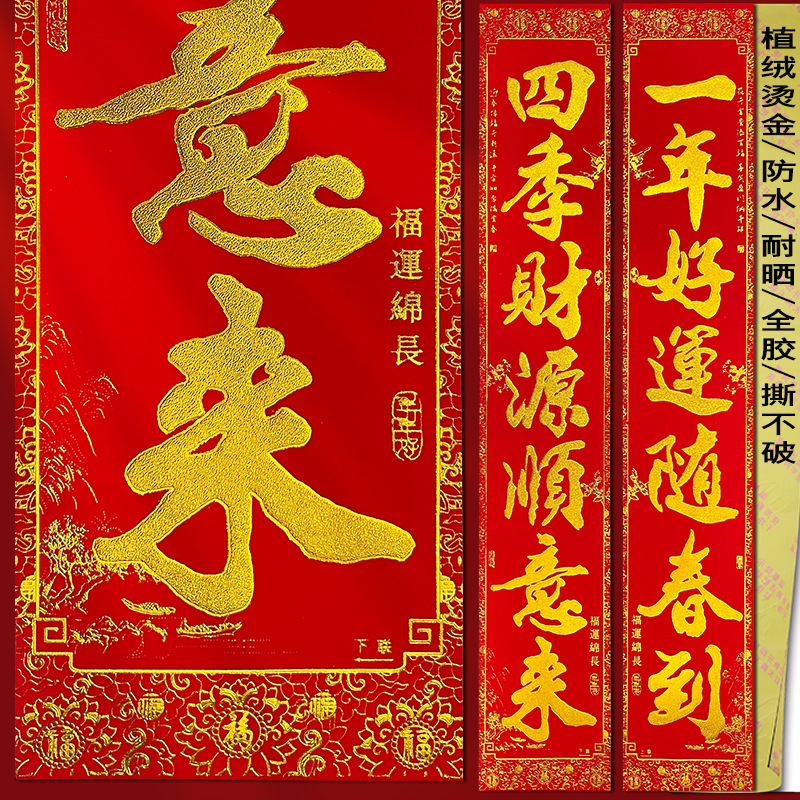 一年好運随春到
四季財源順意来
福運綿長
福運綿長
意来
福運綿長
下聯
福
福
福
植绒烫金/防水/耐晒/全胶/撕不破